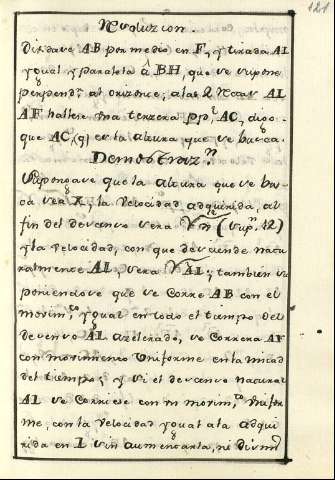 121
Resoluzion.
Dividase AB por medio en F, y tirada AI
ygual y paralela â BH, que se supone
perpend.r al orizonte, a las 2 rectas AI
AF hallese una terzera pp.l AC, digo
que AC, es la altura que se busca.
Demostraz.n
Supongase que la altura que se bus
ca sea X, la velocidad adquirida, al
fin del descenso sera (sup.n 12)
y la velocidad, con que desciende natu
ralmente AI, sera √AI; tambien su
poniendose que se corre AB con el
movim.to ygual en todo el tiempo del
descenso AI azelerado, se correra AF
con movimiento Uniforme en la mitad
del tiempo; y si el descenso natural
AI se corriese con un movim.to Unifor
me, con la velocidad ygual a la adqui
rida en I sin aumentarla, ni disminu